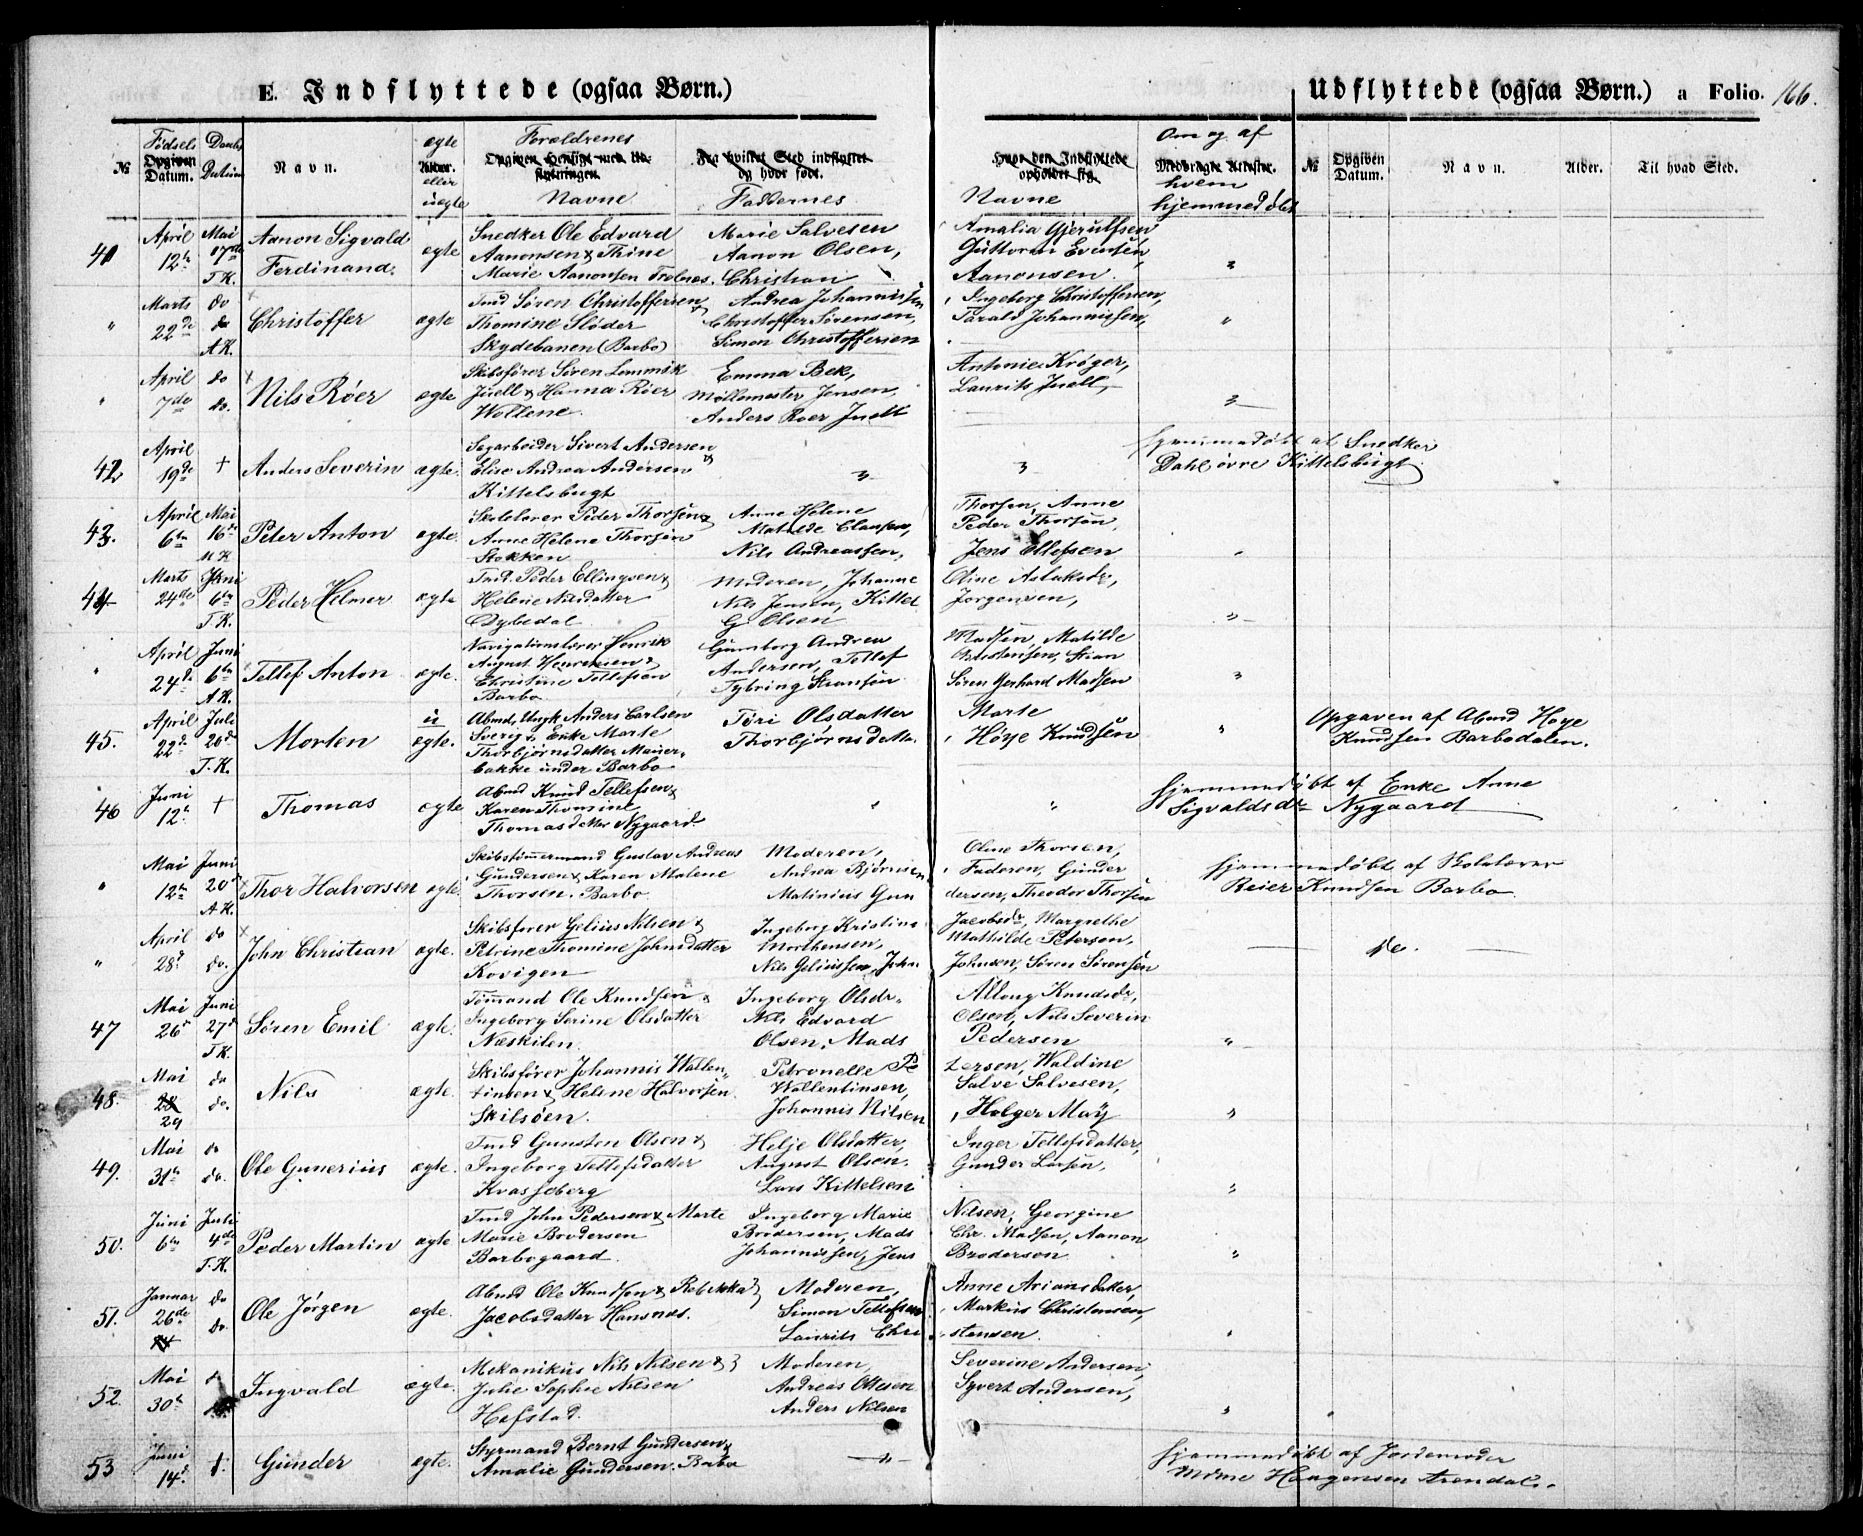 E. Indflyttede (ogsaa Børn.)
Udflyttede (ogsaa Børn.) a Folio. 166.
Fødsels Daabs ægte Forældrenes Om og af
№ Opgiven Datum. Datum Navn. Alder. eller uægte Navne Faddernes Navne hvem hjemmedøbt
№ Opgiven Datum. Navn. Alder. Til hvad Sted.
April Mai Aanon Sigvald Snedker Ole Edvard Marie Salvesen Amalia Gjerulfsen
41 12te 17de Ferdinand. ægte Aanonsen & Thine Aanon Olsen, Guttorm Evensen,
T.K. Marie Aanonsen Trolnes. Christian Aanonsen. "
Marts do Tmd Søren Christoffersen & Andrea Johannissen, Ingeborg Christoffersen,
" 22de do Christoffer ægte Thomine Sløder Christoffer Sørensen, Tarald Johannissen, "
A.K. Skydebanen (Barbo) Simon Christoffersen
April do Skibsfører Søren Lemmik Emma Bek, Antonie Krøger,
" 7de do. Nils Røer ægte Juell & Hanna Røer Møllemester Jensen, Laurits Juell,
Wollene. Anders Roer Juell "
April Sagarbeider Sivert Andersen hjemmedøbt af Snedker
42 19de + Anders Severin ægte. & Elise Andrea Andersen " " Dahl øvre Kittelsbugt.
Kittelsbugt
April Mai Skolelærer Peder Thorsen & Anne Helene Thorsen, Anne
43. 6te 16de Peter Anton ægte. Anne Helene Thorsen Matilde Clausen, Peder Thorsen,
M K Stokken Nils Andreassen, Jens Ellefsen "
Marts Juni Tmd. Peder Ellingsen & Moderen, Johanne Oline Aslaksdr,
44 24de 6te Peder Helmer ægte Helene Nilsdatter Nils Jensen, Kittel Jørgensen,
T.K. Dybedal. G Olsen "
April Juni Navigationslærer Henrik Gunborg Andrea Madsen, Matilde
" 24de 6te Tellef Anton ægte. August Henriksen & Andersen, Tellef Christensen, Stian
A K. Christine Tellefsen Barbo Tybring Stiansøn Søren Gerhard Madsen "
April Juli u Abmd, Ungk. Anders Carlsen Tøri Olsdatter Marte Opgaven af Abmd Høye
45. 22de 20de Morten ægte. Sverig & Enke Marte Thorbjørnsdatter, Høye Knudsen " Knudsen Barbodalen.
T.K. Thorbjørnsdatter bakke under Barbo
Juni Abmd Knud Tellefsen & hjemmedøbt af Enke Anne
46 12te + Thomas ægte Karen Thomine " " Sigvaldsdr Nygaard
Thomasdatter Nygaard.
Mai Juni Skibstømmermand Gustav Andreas Moderen, Oline Thorsen, hjemmedøbt af Skolelærer
" 12te 20de Thor Halvorsen ægte. Gundersen & Karen Malene Andrea Bjørnsen, Faderen, Gunder Reier Knudsen Barbo.
A K. Thorsen. Barbo Matinius Gun dersen, Theodor Thorsen
April do Skibsfører Gelius Nilsen & Ingeborg Kristine Jacobsdr, Margrethe
" 28de do. John Christian ægte. Petrine Thomine Johnsdatter Morthensen, Mathilde Petersen, do.
Kovigen Nils Geliussen, John Johnsen, Søren Sørensen
Mai Juni Tømmand Ole Knudsen & Ingeborg Olsdr. Allong Knudsdr,
47 26de 27de Søren Emil ægte. Ingeborg Serine Olsdatter Nils Edvard Olsen, Nils Severin
T K. Næskilen. Olsen, Mads Pedersen "
Mai do Skibsfører Johannis Wallen= Petronelle Pe tersen, Waldine
48. 29 do. Nils ægte. tinsen & Helene Halvorsen. Wallentinsen, Salve Salvesen,
Skilsøen. Johannis Nilsen, Holger Maÿ "
Mai do Tmd Gunsten Olsen & Helje Olsdatter, Inger Tellefsdatter,
49. 31te do. Ole Gunerius ægte. Ingeborg Tellefsdatter August Olsen, Gunder Larsen,
Kvasseberg Lars Kittelsen "
Juni Juli Tmd John Pedersen & Marte Ingeborg Marie Nilsen, Georgine
50. 6te 4de Peder Martin ægte Marie Brodersen Brodersen, Mads Chr. Madsen, Aanon
T.K. Barbogaard. Johannissen, Jens Brodersen "
Januar do Abmd Ole Knudsen & Rebekka Moderen, Anne Ariansdatter,
51. 26de do. Ole Jørgen ægte. Jacobsdatter Hansnæs. Simon Tellefsen, Markus Christensen,
Laurits Chri stensen. "
Mai do Mekanikus Nils Nilsen & Moderen, Severine Andersen,
52. 30te Ingvald ægte. Julie Sophie Nilsen Andreas Ottesen Syvert Andersen,
Hafstad. Anders Nilsen "
Juni Styrmand Bernt Gundersen & hjemmedøbt af Jordemoder
53 14de +. Gunder ægte. Amalie Gundersen. Barbo " Haagensen Arendal.